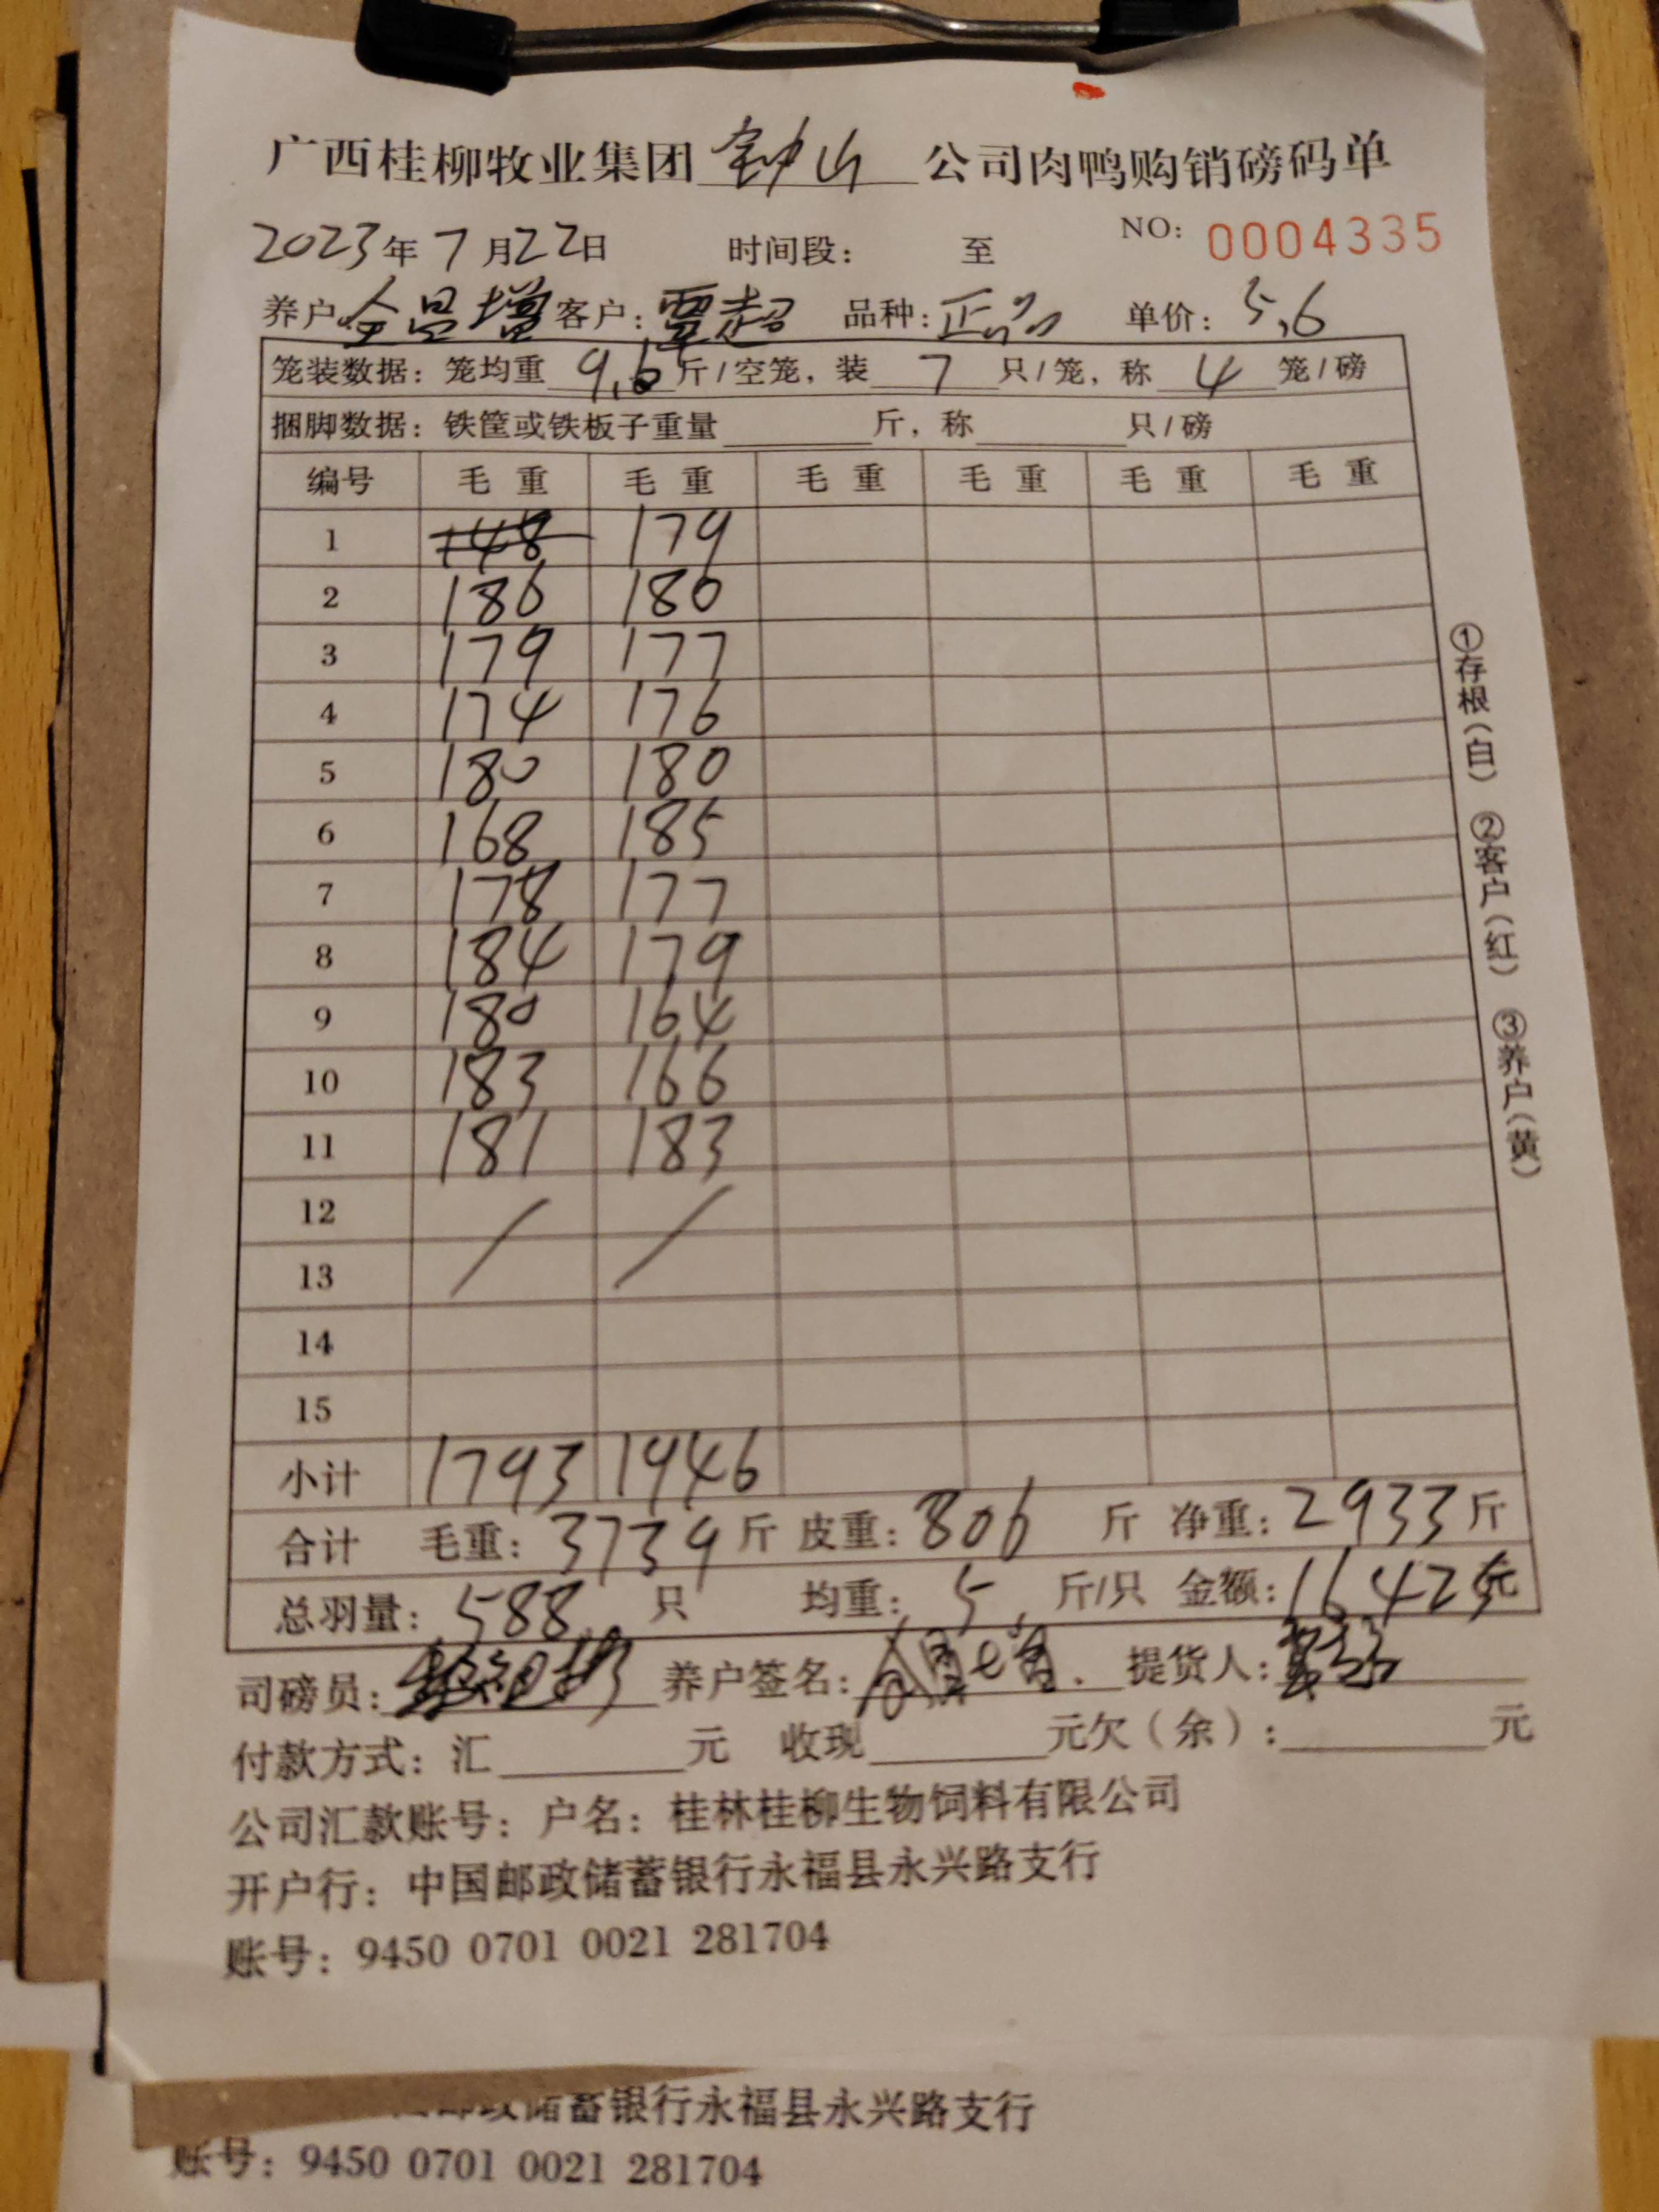 广西桂柳牧业集团 钟山 公司肉鸭购销磅码单
2023年7月22日 时间段: 至 NO: 0004335
养户 全昌增 客户: 覃超 品种: 正品 单价: 5.6
笼装数据: 笼均重 9.6 斤/空笼, 装 7 只/笼, 称 4 笼/磅
捆脚数据: 铁筐或铁板子重量 斤, 称 只/磅
编号 毛重 毛重 毛重 毛重 毛重 毛重
1 148 179
2 186 180
3 179 177
4 174 176
5 180 180
6 168 185
7 178 177
8 184 179
9 180 164
10 183 166
11 181 183
12 / /
13
14
15
小计 1793 1946
合计 毛重: 3739 斤 皮重: 806 斤 净重: 2933 斤
总羽量: 588 只 均重: 5 斤/只 金额: 16425元
司磅员: 养户签名: 提货人:
付款方式: 汇 元 收现 元欠(余): 元
公司汇款账号: 户名: 桂林桂柳生物饲料有限公司
开户行: 中国邮政储蓄银行永福县永兴路支行
账号: 9450 0701 0021 281704
①存根(白) ②客户(红) ③养户(黄)
储蓄银行永福县永兴路支行
账号: 9450 0701 0021 281704